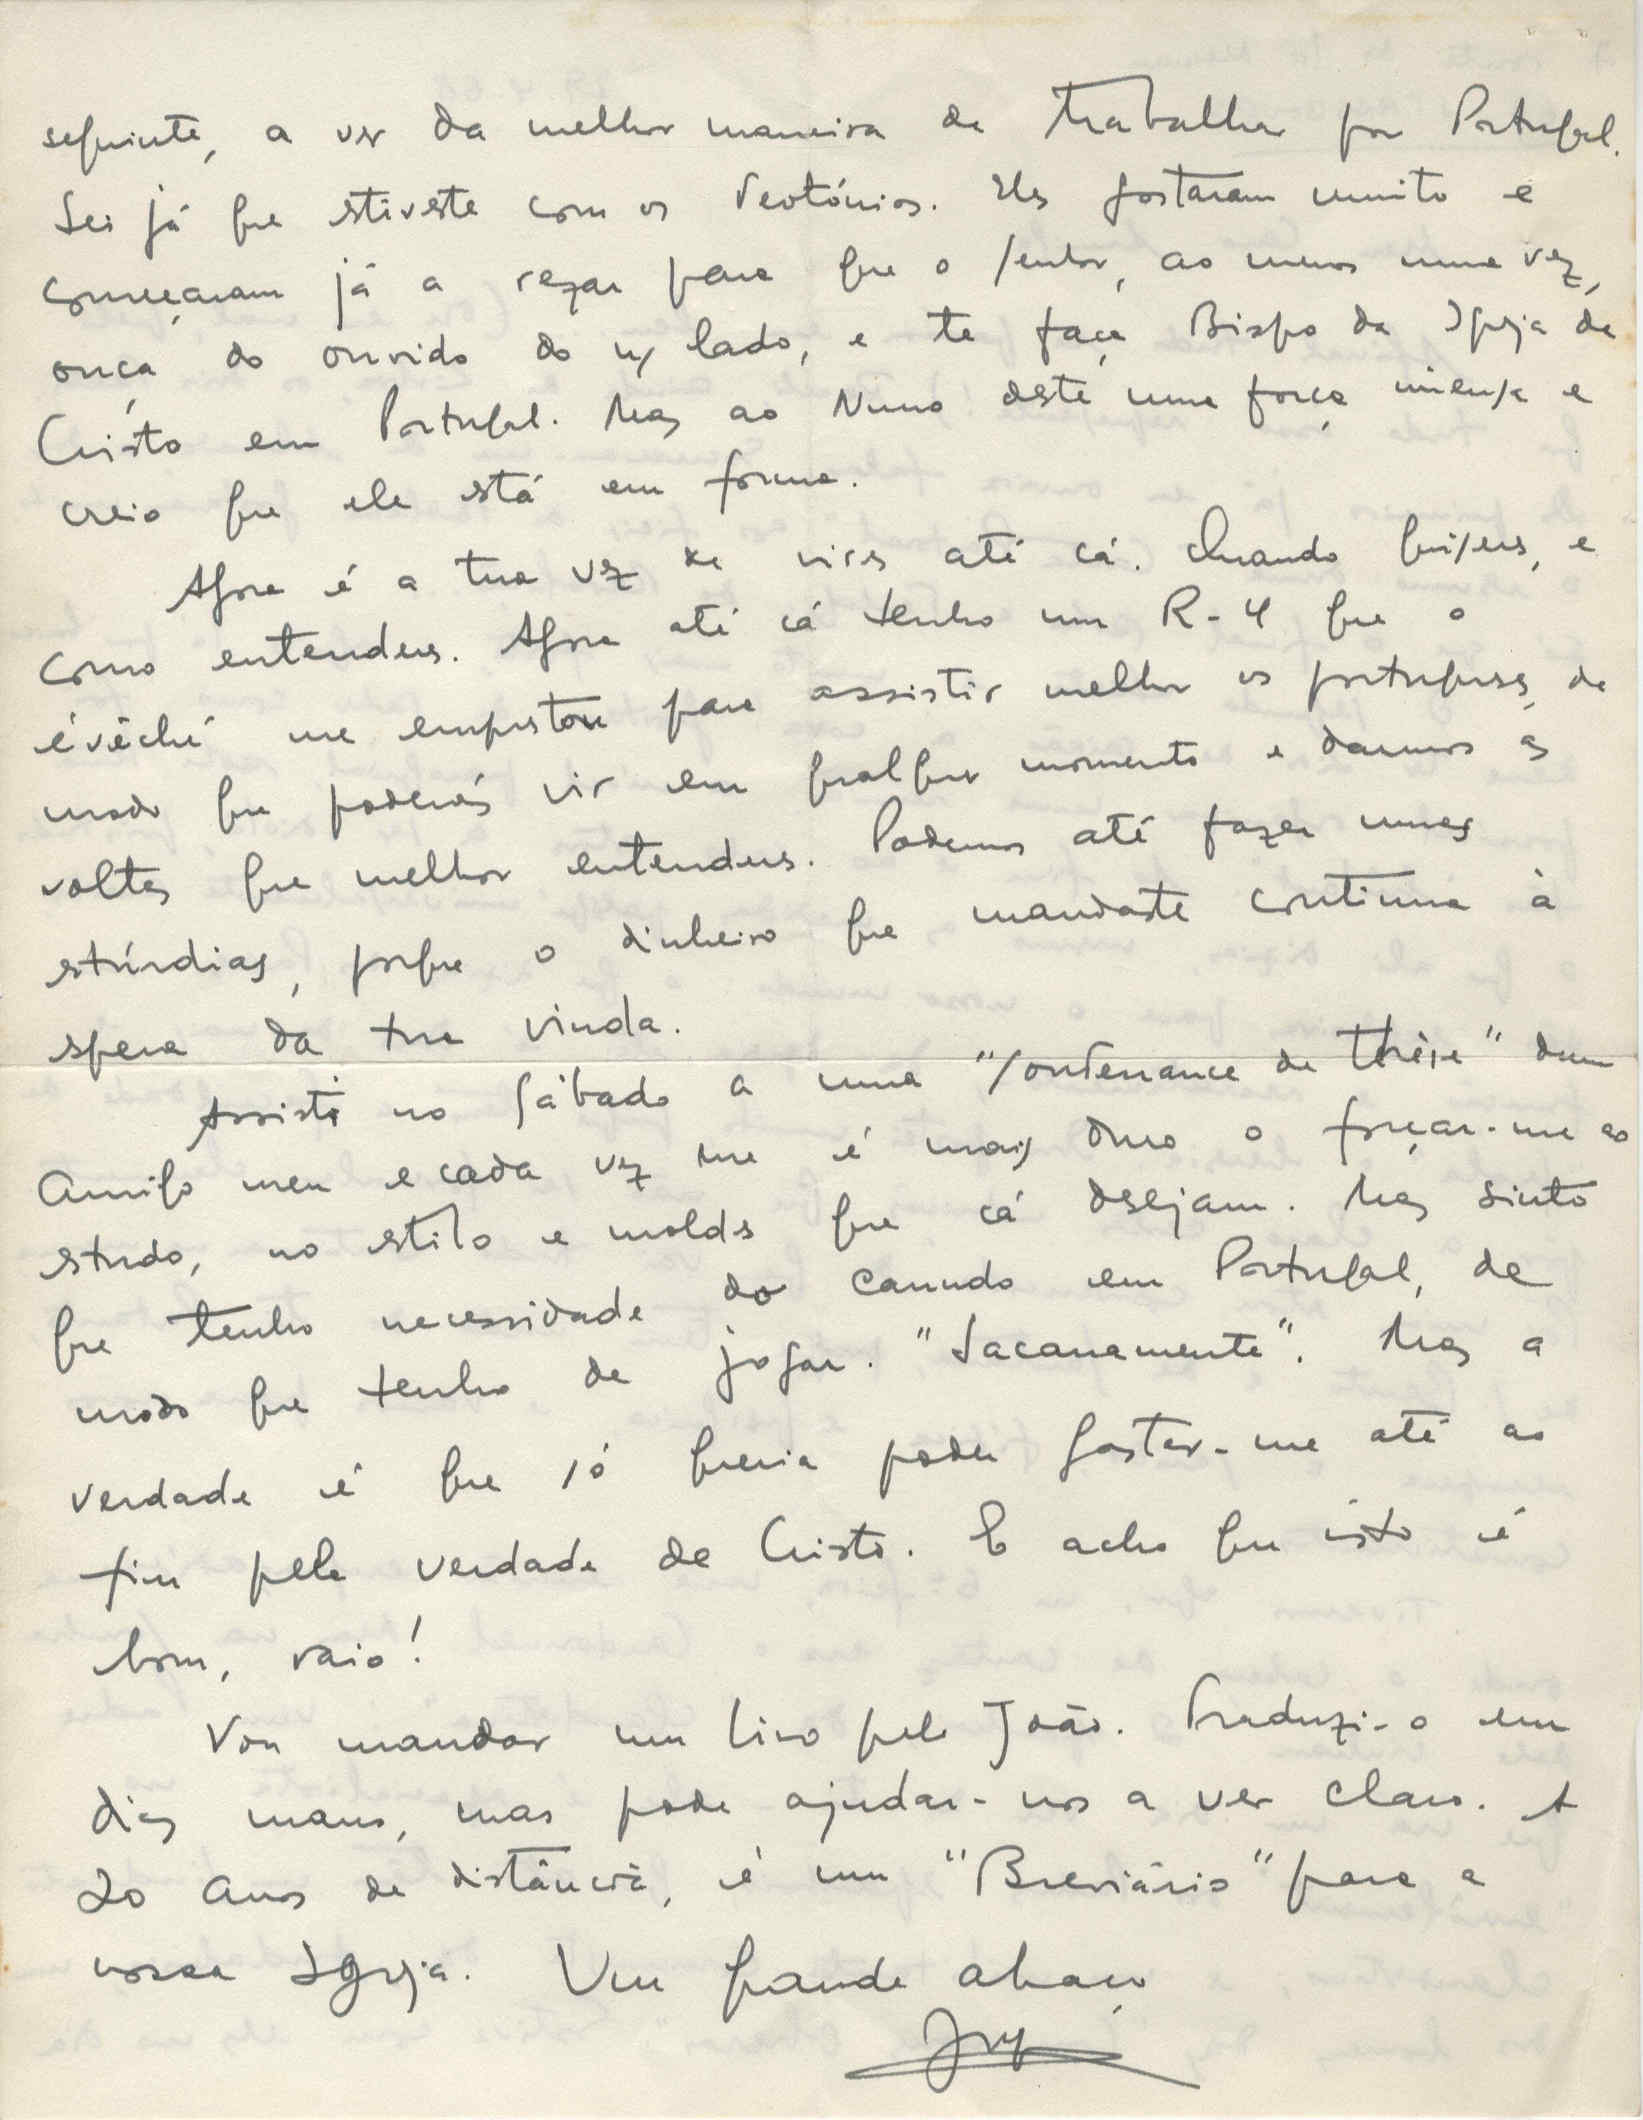 seguinte, a ver da melhor maneira de trabalhar por Portugal.
Sei já que estiveste com os Teotónios. Eles gostaram muito e
começaram já a rezar para que o Senhor, ao menos uma vez,
ouça do ouvido do n/ lado, e te faça Bispo da Igreja de
Cristo em Portugal. Mas ao Nuno deste uma força imensa e
creio que ele está em forma.
Agora é a tua vez de vires até cá. Quando quiseres, e
como entenderes. Agora até cá tenho um R-4 que o
évêché me emprestou para assistir melhor os portugueses, de
modo que poderás vir em qualquer momento e darmos as
voltas que melhor entenderes. Podemos até fazer umas
estúrdias, porque o dinheiro que mandaste continua à
espera da tua vinda.
Assisti no Sábado a uma "Soutenance de thèse" dum
amigo meu e cada vez me é mais duro o forçar-me ao
estudo, no estilo e moldes que cá desejam. Mas sinto
que tenho necessidade do canudo em Portugal, de
modo que tenho de jogar. "Sacanamente". Mas a
verdade é que só queria poder gastar-me até ao
fim pela verdade de Cristo. E acho que isto é
bom, raio!
Vou mandar um livro pelo João. Traduzi-o em
dias maus, mas pode ajudar-nos a ver claro. A
20 anos de distância, é um "Breviário" para a
nossa Igreja. Um grande abraço